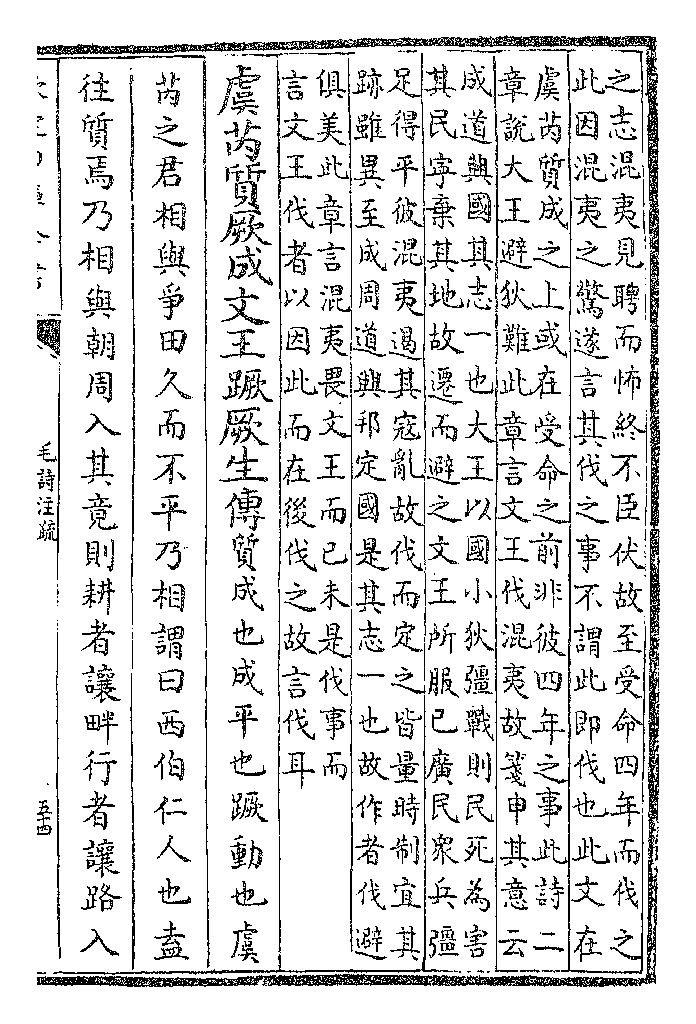 之志混夷見聘而怖終不臣伏故至受命四年而伐之
此因混夷之驚遂言其伐之事不謂此即伐也此文在
虞芮質成之上或在受命之前非彼四年之事此詩二
章說大王避狄難此章言文王伐混夷故箋申其意云
成道興國其志一也大王以國小狄彊戰則民死為害
其民寧棄其地故遷而避之文王所服已廣民衆兵彊
足得平彼混夷遏其寇亂故伐而定之皆量時制宜其
跡雖異至成周道興邦定國是其志一也故作者伐避
俱美此章言混夷畏文王而已未是伐事而
言文王伐者以因此而在後伐之故言伐耳
虞芮質厥成文王蹶厥生傳質成也成平也蹶動也虞
芮之君相與爭田久而不平乃相謂曰西伯仁人也盍
往質焉乃相與朝周入其竟則耕者讓畔行者讓路入
毛詩注疏
五十四